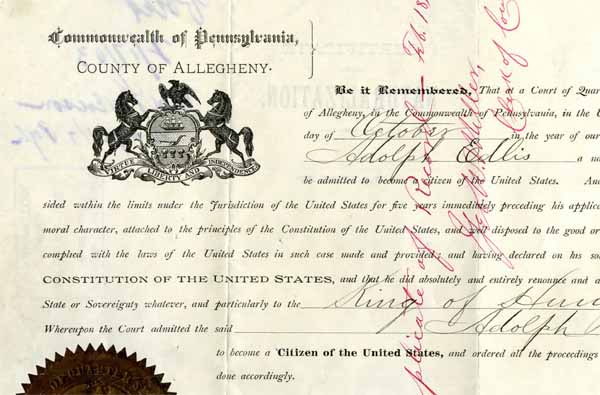 Commonwealth of Pennsylvania,
COUNTY OF ALLEGHENY.
VIRTUE LIBERTY AND INDEPENDENCE
Be it Remembered, That at a Court of Quar
of Allegheny, in the Commonwealth of Pennsylvania, in the U
day of October in the year of our
Adolph Edlis a n
be admitted to become a citizen of the United States. And
sided within the limits under the Jurisdiction of the United States for five years immediately preceding his applic
moral character, attached to the principles of the Constitution of the United States, and well disposed to the good or
complied with the laws of the United States in such case made and provided; and having declared on his so
CONSTITUTION OF THE UNITED STATES, and that he did absolutely and entirely renounce and a
State or Sovereignty whatever, and particularly to the King of Hun
Whereupon the Court admitted the said Adolph
to become a Citizen of the United States, and ordered all the proceedings
done accordingly.
plicate of Record Feb. 18
Clerk of Cou